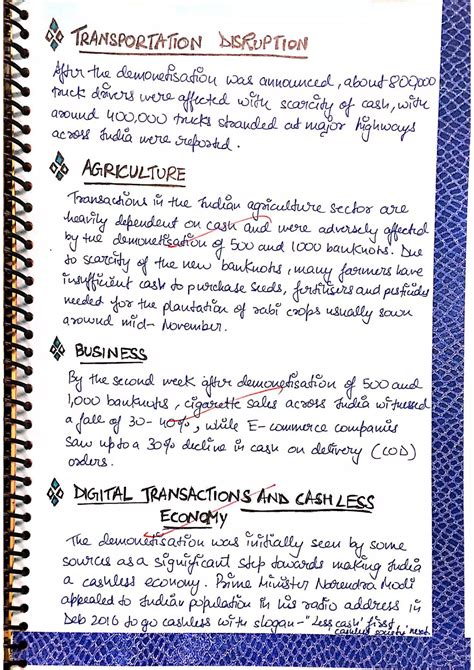 TRANSPORTATION DISRUPTION
After the demonetisation was announced, about 800,000
truck drivers were affected with scarcity of cash, with
around 400,000 trucks stranded at major highways
across India were reported.
AGRICULTURE
Transactions in the Indian agriculture sector are
heavily dependent on cash and were adversely affected
by the demonetisation of 500 and 1000 banknots. Due
to scarcity of the new banknots, many farmers have
insufficient cash to purchase seeds, fertilisers and pesticides
needed for the plantation of rabi crops usually sown
around mid-November.
BUSINESS
By the second week after demonetisation of 500 and
1,000 banknots, cigarette sales across India witnessed
a fall of 30-40%, while E-commerce companies
saw upto a 30% decline in cash on delivery (COD)
orders.
DIGITAL TRANSACTIONS AND CASHLESS
ECONOMY
The demonetisation was initially seen by some
sources as a significant step towards making India
a cashless economy. Prime Minister Narendra Modi
appealed to Indian population in his radio address in
2016 to go cashless with slogan-"Less cash' first,
'cashless society' next